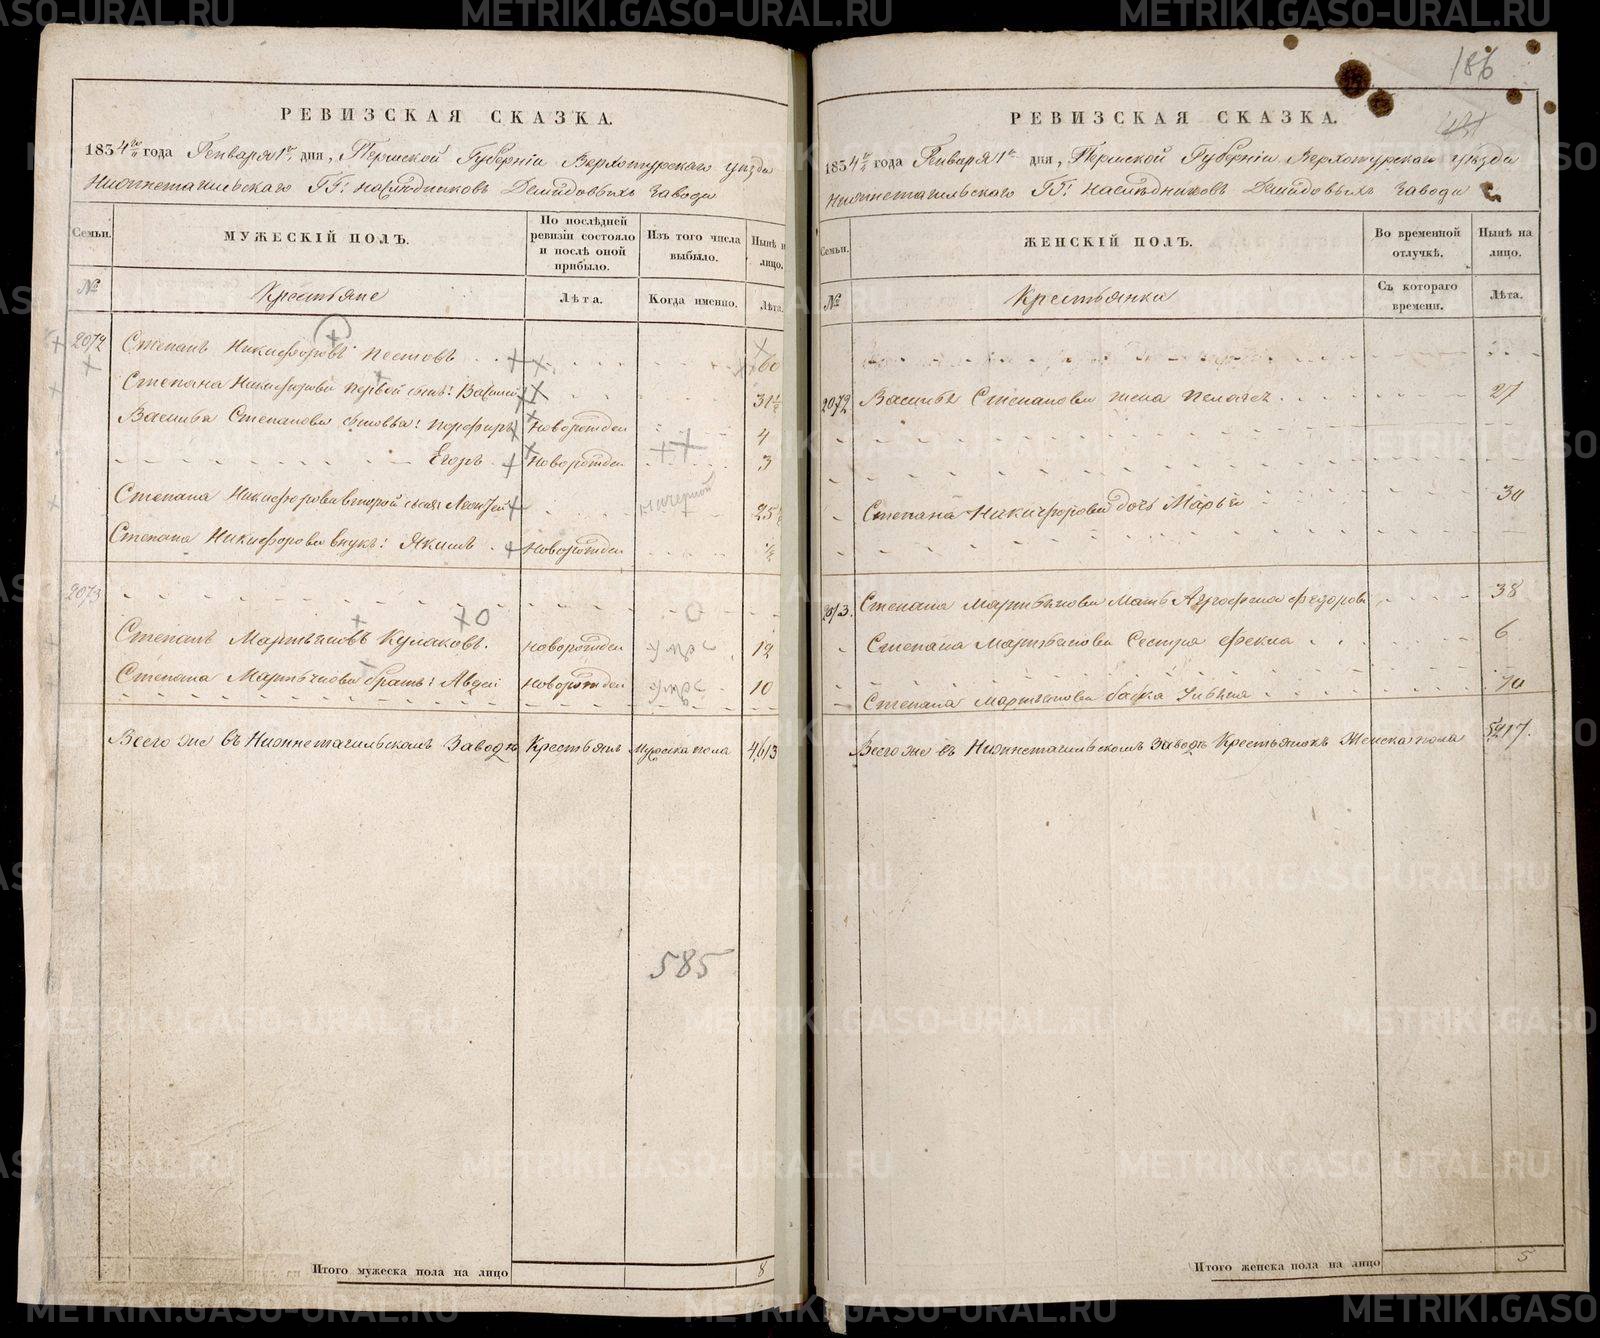 РЕВИЗСКАЯ СКАЗКА.
1834 года Генваря 1 дня, Пермской Губерніи Верхотурскаго уѣзда
Нижнетагильскаго ГГ: наслѣдниковъ Демидовыхъ Завода
Семьи.
МУЖЕСКІЙ ПОЛЪ.
По послѣдней ревизіи состояло и послѣ оной прибыло.
Изъ того числа выбыло.
Нынѣ на лицо.
№
Крестьяне
Лѣта.
Когда именно.
Лѣта.
2072 Степанъ Никифоровъ Пестовъ 60
Степана Никифорова первой сынъ: Василей 31½
Василья Степанова сыновья: Порфиръ Новорожден 4
Егоръ Новорожден 3
Степана Никифорова второй сынъ Леонтей 25
Степана Никифорова внукъ: Якимъ Новорожден ½
2073
Степанъ Мартьяновъ Кулаковъ. новорожден 12
Степана Мартьянова братъ: Авдей новорожден 10
Всего же въ Нижнетагильскомъ Заводѣ Крестьянъ Мужеска пола 4613
585
Итого мужеска пола на лицо 8
186
РЕВИЗСКАЯ СКАЗКА.
1834 года Генваря 1 дня, Пермской Губерніи Верхотурскаго уѣзда
Нижнетагильскаго ГГ: наслѣдниковъ Демидовыхъ Завода
Семьи.
ЖЕНСКІЙ ПОЛЪ.
Во временной отлучкѣ.
Нынѣ на лицо.
№
Крестьянки
Съ котораго времени.
Лѣта.
2072 Василья Степанова жена Пелагея 27
Степана Никифорова дочь Марья 30
2073. Степана Мартьянова Мать Агрофена Федорова 38
Степана Мартьянова Сестра Фекла 6
Степана Мартьянова бабка Ульяна 70
Всего же въ Нижнетагильскомъ Заводѣ Крестьянокъ Женска пола 5217.
Итого женска пола на лицо 5
METRIKI.GASO-URAL.RU